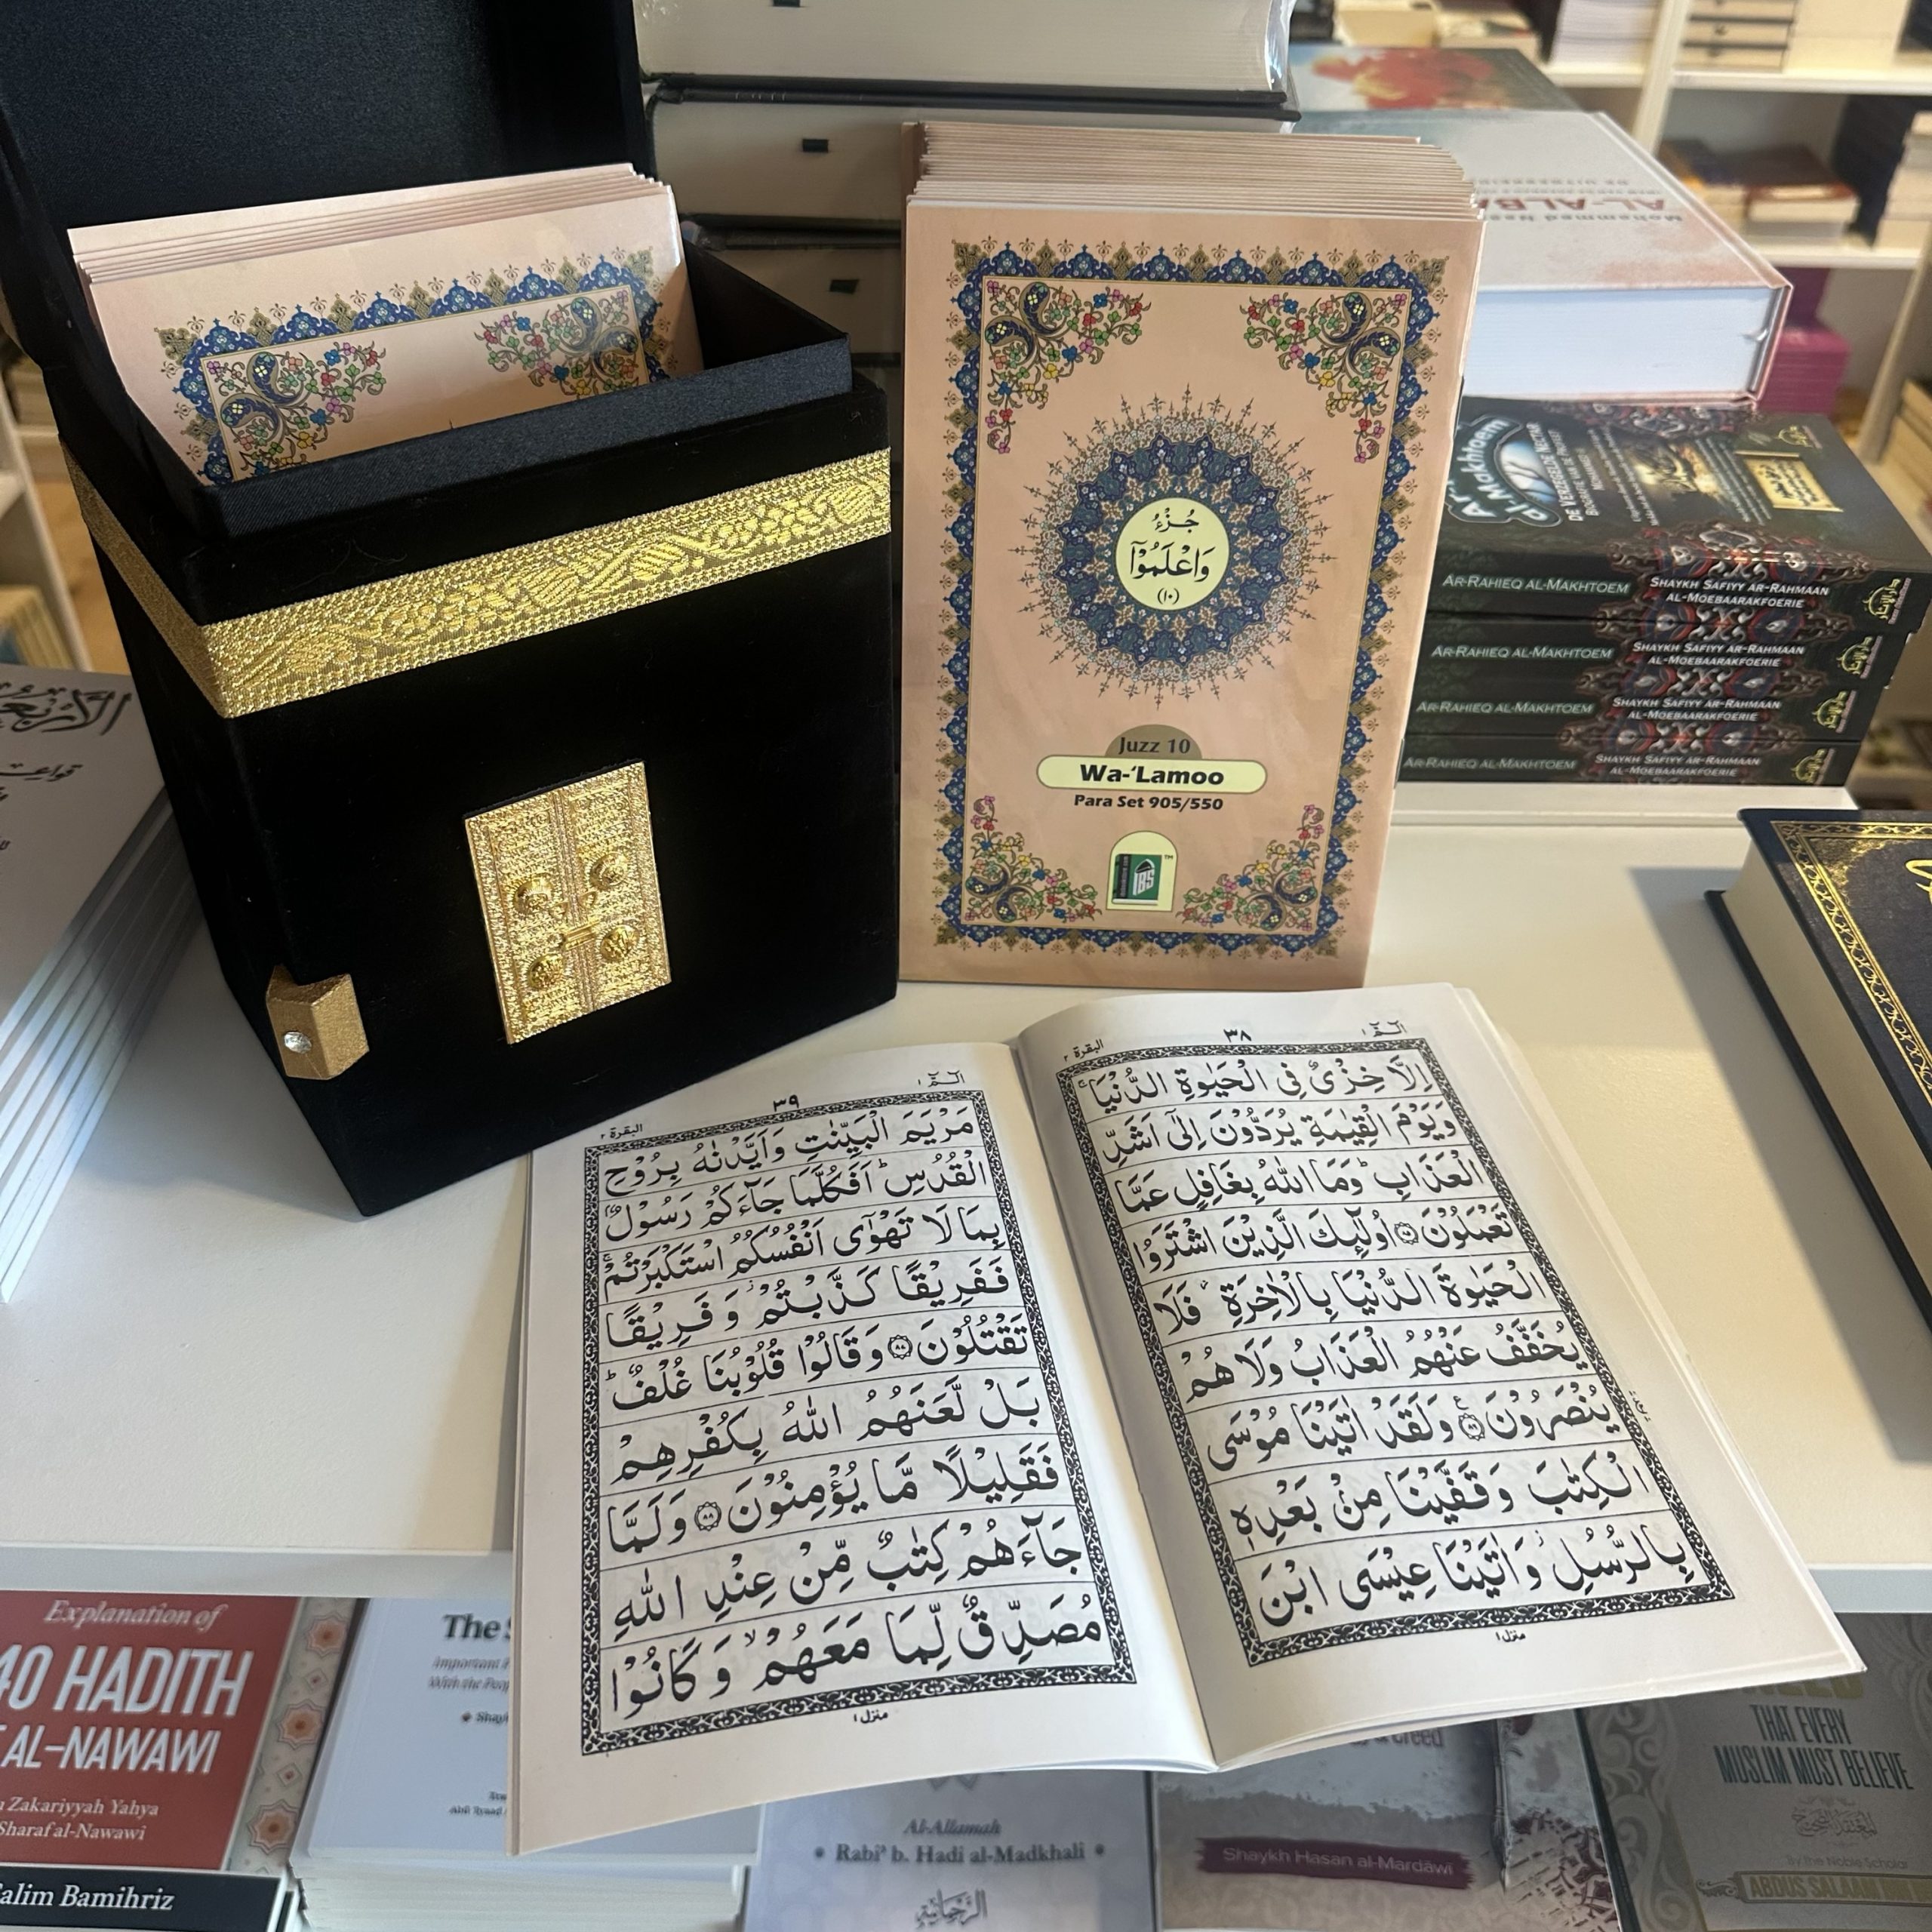 جُزْءُ
وَاعْلَمُوْٓا
(١٠)
Juzz 10
Wa-‘Lamoo
Para Set 905/550
IBS
TM
البقرة ٢
٣٨
الٓمّٓ ١
اِلَّا خِزْىٌ فِى الْحَيٰوةِ الدُّنْيَاۚ
وَيَوْمَ الْقِيٰمَةِ يُرَدُّوْنَ اِلٰٓى اَشَدِّ
الْعَذَابِؕ وَمَا اللّٰهُ بِغَافِلٍ عَمَّا
تَعْمَلُوْنَ ۝٨٥ اُولٰٓئِكَ الَّذِيْنَ اشْتَرَوُا
الْحَيٰوةَ الدُّنْيَا بِالْاٰخِرَةِ ؗ فَلَا
يُخَفَّفُ عَنْهُمُ الْعَذَابُ وَلَا هُمْ
يُنْصَرُوْنَ ۝٨٦ وَلَقَدْ اٰتَيْنَا مُوْسَى
الْكِتٰبَ وَقَفَّيْنَا مِنْۢ بَعْدِهٖ
بِالرُّسُلِؗ وَاٰتَيْنَا عِيْسَى ابْنَ
منزل ١
البقرة ٢
٣٩
الٓمّٓ ١
مَرْيَمَ الْبَيِّنٰتِ وَاَيَّدْنٰهُ بِرُوْحِ
الْقُدُسِؕ اَفَكُلَّمَا جَآءَكُمْ رَسُوْلٌۢ
بِمَا لَا تَهْوٰٓى اَنْفُسُكُمُ اسْتَكْبَرْتُمْۚ
فَفَرِيْقًا كَذَّبْتُمْؗ وَفَرِيْقًا
تَقْتُلُوْنَ ۝٨٧ وَقَالُوْا قُلُوْبُنَا غُلْفٌؕ
بَلْ لَّعَنَهُمُ اللّٰهُ بِكُفْرِهِمْ
فَقَلِيْلًا مَّا يُؤْمِنُوْنَ ۝٨٨ وَلَمَّا
جَآءَهُمْ كِتٰبٌ مِّنْ عِنْدِ اللّٰهِ
مُصَدِّقٌ لِّمَا مَعَهُمْۙ وَكَانُوْا
منزل ١
AL-ALBA
AR-RAHIEQ AL-MAKHTOEM SHAYKH SAFIYY AR-RAHMAAN AL-MOEBAARAKFOERIE
AR-RAHIEQ AL-MAKHTOEM SHAYKH SAFIYY AR-RAHMAAN AL-MOEBAARAKFOERIE
AR-RAHIEQ AL-MAKHTOEM SHAYKH SAFIYY AR-RAHMAAN AL-MOEBAARAKFOERIE
AR-RAHIEQ AL-MAKHTOEM SHAYKH SAFIYY AR-RAHMAAN AL-MOEBAARAKFOERIE
Explanation of
40 HADITH
AL-NAWAWI
Zakariyyah Yahya
Sharaf al-Nawawi
Salim Bamihriz
The
Important
With the
Al-Allamah
• Rabi' b. Hadi al-Madkhali •
Creed
Shaykh Hasan al-Mardāwi
THAT EVERY
MUSLIM MUST BELIEVE
By The Noble Scholar
ABDUS SALAAM